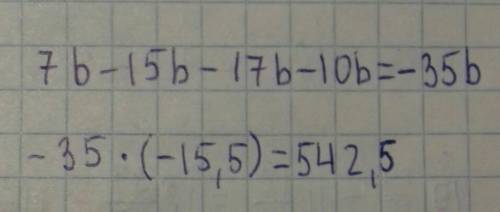 7b-15b-17b-10b=-35b
-35·(-15,5)=542,5